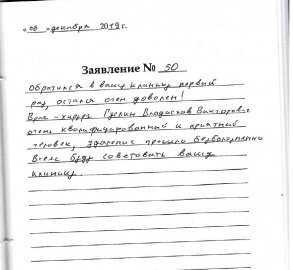 «08 »декабря 2019 г.
Заявление № 50
Обратился в вашу клинику первый
раз, остался очен доволен!
Врач-хирург Гуслин Владислав Викторович
очень квалифицированный и приятный
человек, удаление прошло безболезненно
Всем буду советовать Вашу
клинику